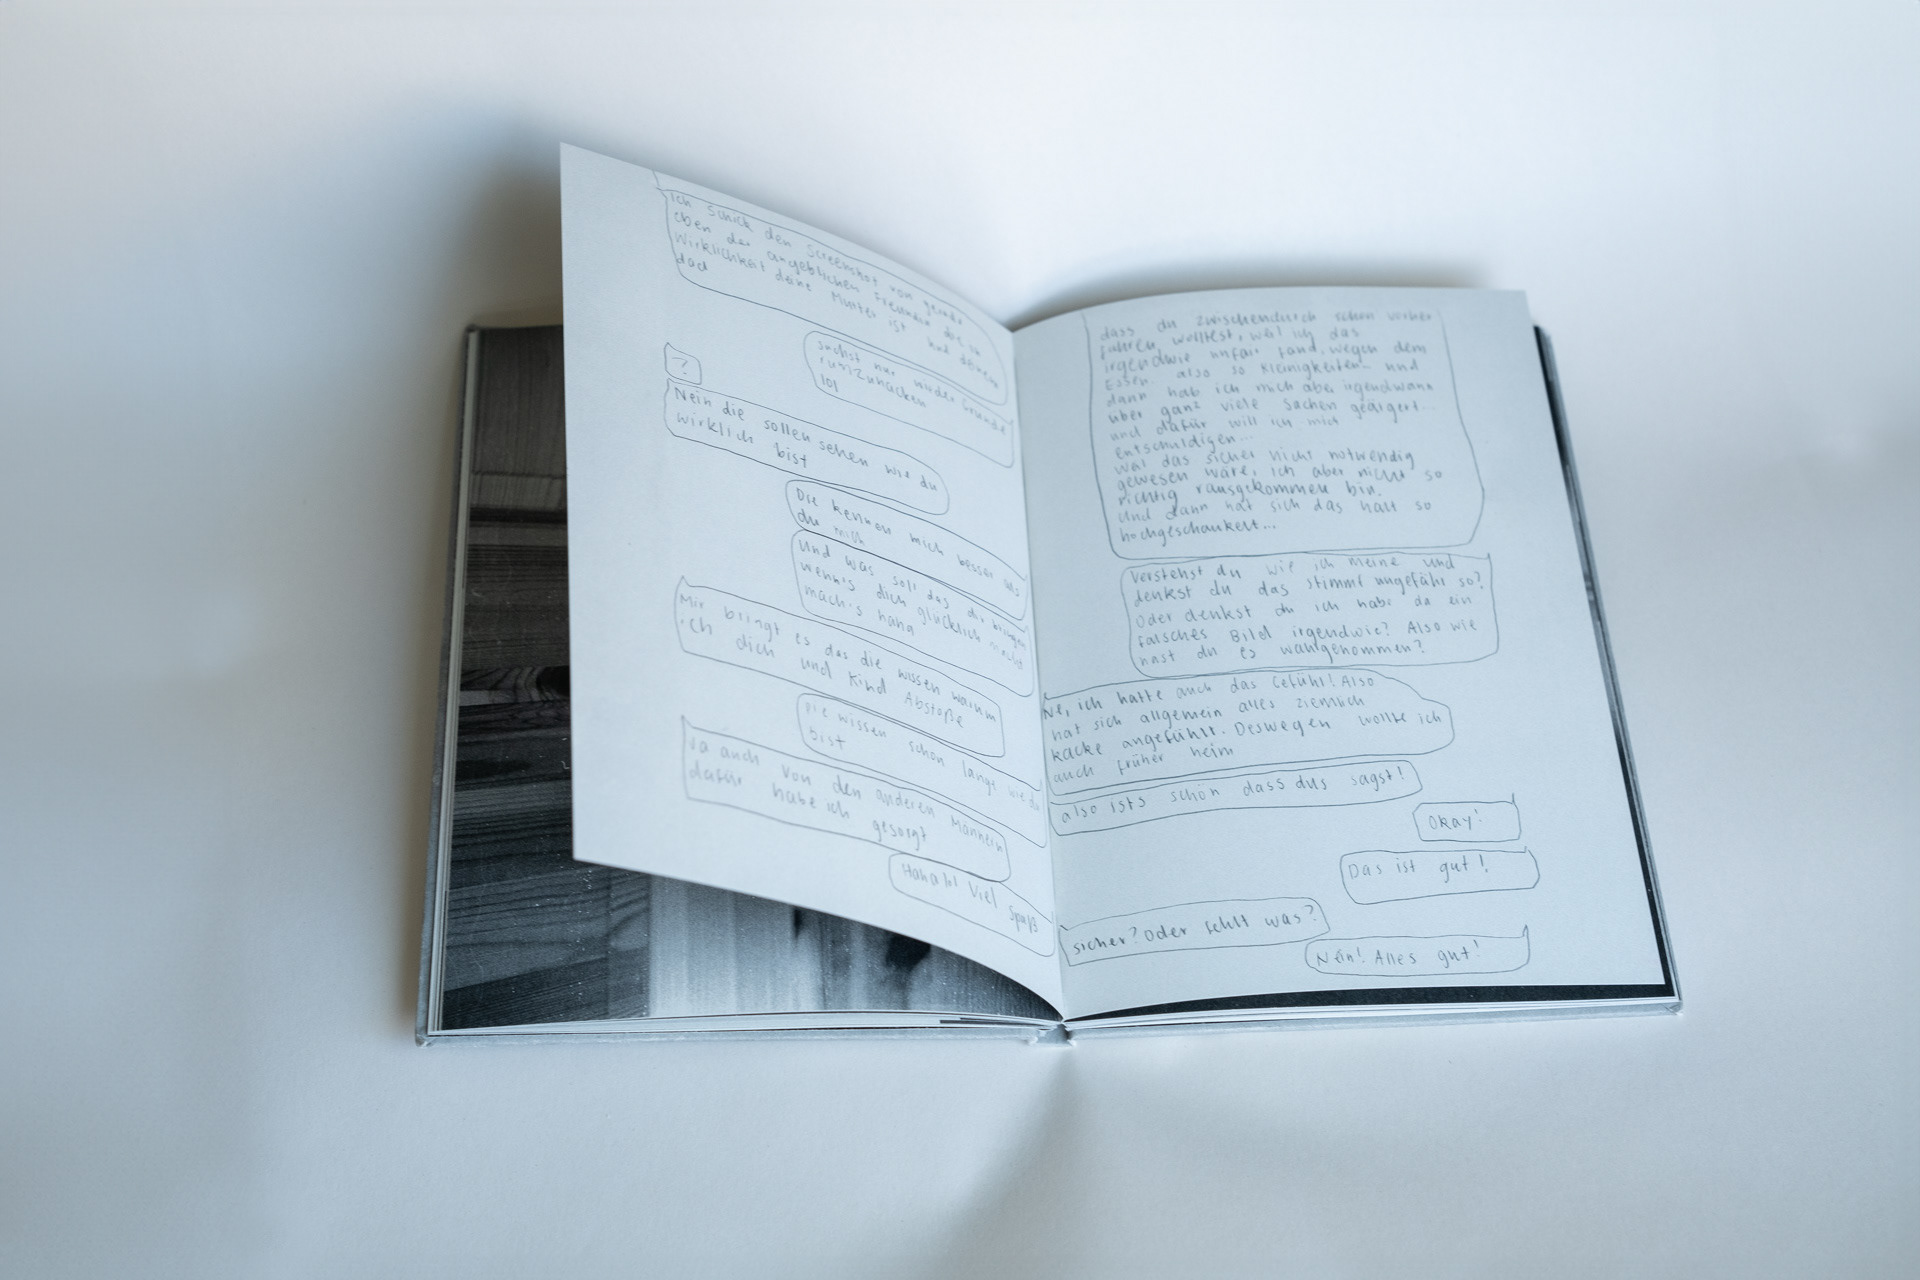 Ich schick den Screenshot von gerade
eben der angeblichen Freundin die in
Wirklichkeit deine Mutter ist und deinem
dad
suchst nur wieder Gründe
rumzuhacken
lol
?
Nein die sollen sehen wie du
wirklich bist
Die kennen mich besser als
du mich
Und was soll das dir bringen
wenn's dich glücklich macht
mach's haha
Mir bringt es das die wissen warum
ich dich und Kind Abstoße
Die wissen schon lange wie du
bist
Ja auch von den anderen Männern
dafür habe ich gesorgt
Hahalol Viel Spaß
dass du zwischendurch schon vorher
fahren, wolltest, weil ich das
irgendwie unfair fand, wegen dem
Essen. also so Kleinigkeiten und
dann hab ich mich aber irgendwann
über ganz viele Sachen geärgert...
und dafür will ich mich
entschuldigen...
weil das sicher nicht notwendig
gewesen wäre, ich aber nicht so
richtig rausgekommen bin.
Und dann hat sich das halt so
hochgeschaukelt...
Verstehst du wie ich meine und
denkst du das stimmt ungefähr so?
Oder denkst du ich habe da ein
falsches Bild irgendwie? Also wie
hast du es wahrgenommen?
Ne, ich hatte auch das Gefühl! Also
hat sich allgemein alles ziemlich
kacke angefühlt. Deswegen wollte ich
auch früher heim
also ists schön dass dus sagst!
Okay!
Das ist gut!
sicher? Oder fehlt was?
Nein! Alles gut!